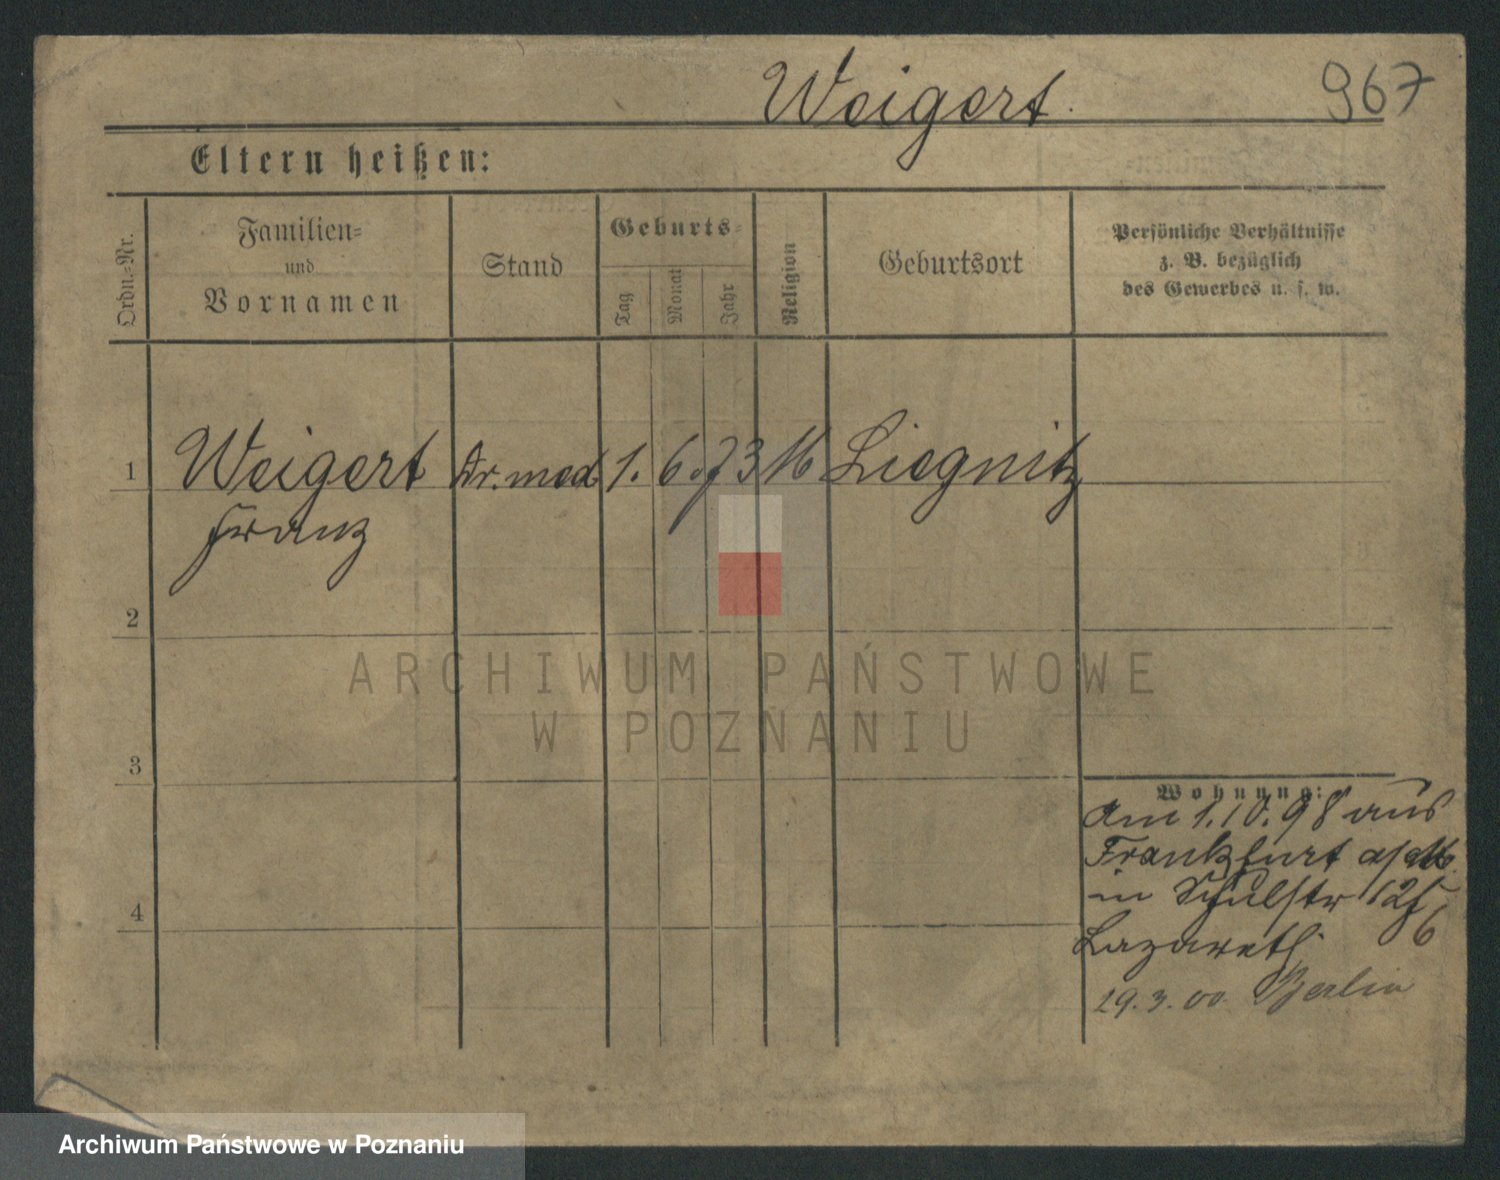 Weigert. 967
Eltern heißen:
Ordn.=Nr.
Familien=
und
Vornamen
Stand
Geburts=
Tag
Monat
Jahr
Religion
Geburtsort
Persönliche Verhältnisse
z. B. bezüglich
des Gewerbes u. s. w.
1 Weigert Dr. med 1. 6. 73 Liegnitz
Franz
2
ARCHIWUM PAŃSTWOWE
W POZNANIU
3
Wohnung:
Am 1.10.98 aus
Frankfurt a/M.
in Schulstr 12
4
Lazareth
29.3.00. Berlin
Archiwum Państwowe w Poznaniu